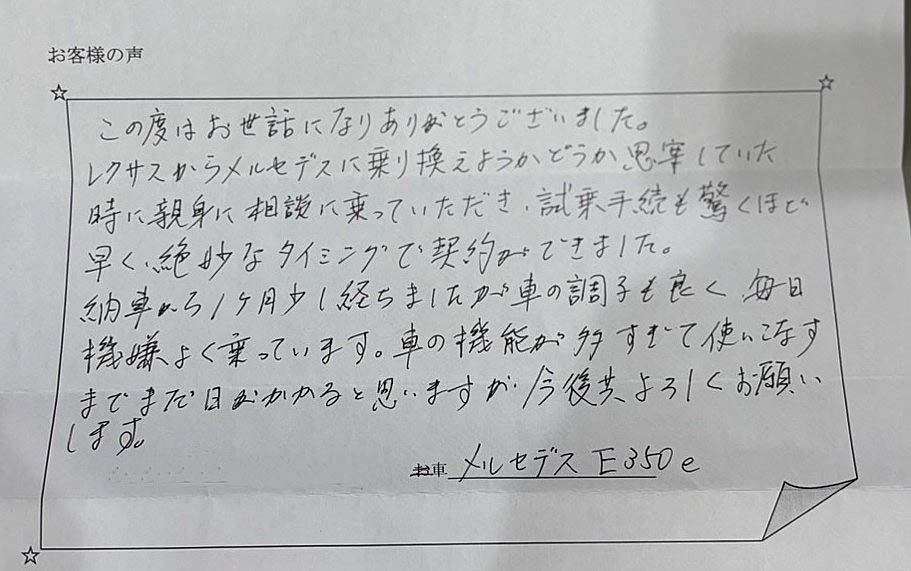 お客様の声
この度はお世話になりありがとうございました。
レクサスからメルセデスに乗り換えようかどうか思案していた
時に親身に相談に乗っていただき、試乗手続も驚くほど
早く、絶妙なタイミングで契約ができました。
納車から1ヶ月少し経ちましたが車の調子も良く、毎日
機嫌よく乗っています。車の機能が多すぎて使いこなす
までまだ日がかかると思いますが、今後共よろしくお願い
します。
お車 メルセデス E350e